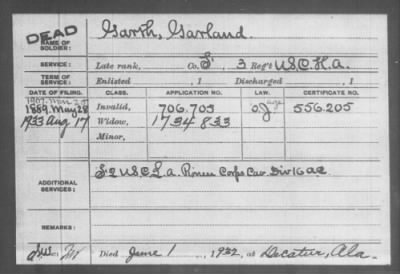 DEAD
NAME OF SOLDIER: Garth, Garland.
SERVICE: Late rank, Co. I, 3 Reg't U.S.C.H.A.
TERM OF SERVICE: Enlisted , 1 Discharged , 1
DATE OF FILING. CLASS. APPLICATION NO. LAW. CERTIFICATE NO.
1889 May 28 Invalid, 706.705 age 556.205
1933 Aug 17 Widow, 1734833
Minor,
ADDITIONAL SERVICES: U.S.C. Pioneer Corps Cav. Div 16 A.C.
REMARKS:
Died June 1, 1932, at Decatur, Ala.